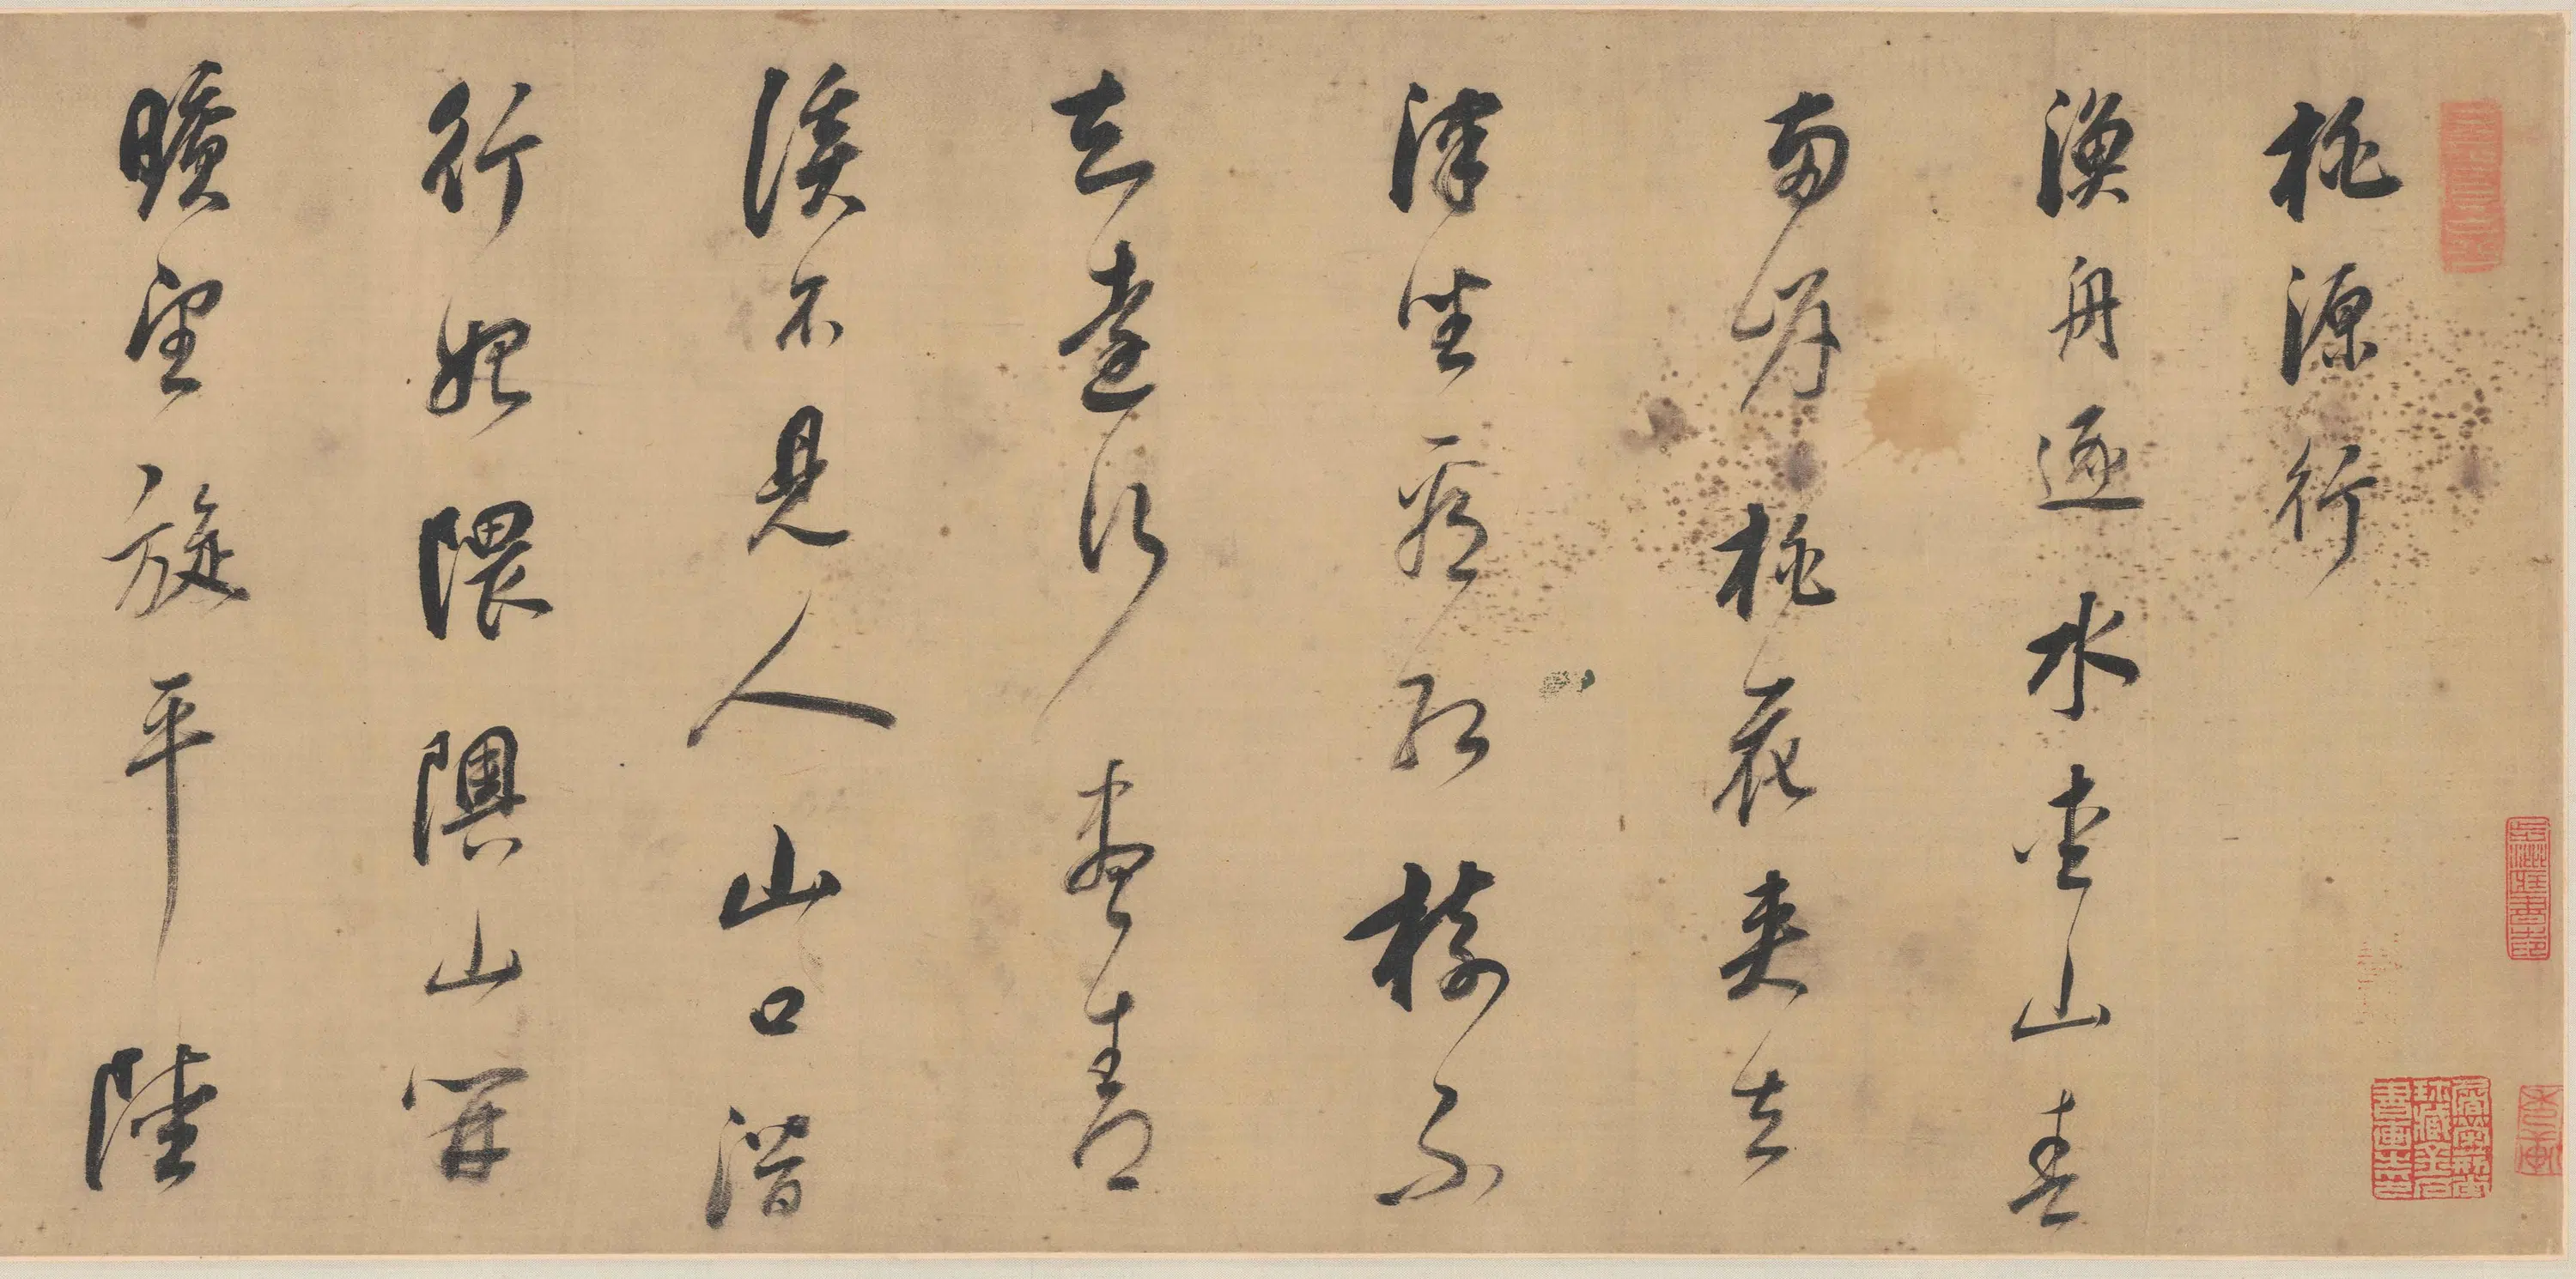 桃源行
漁舟逐水愛山春
兩岸桃花夾去
津坐看紅樹不
知遠行盡青
溪不見人山口潛
行始隈隩山開
曠望旋平陸